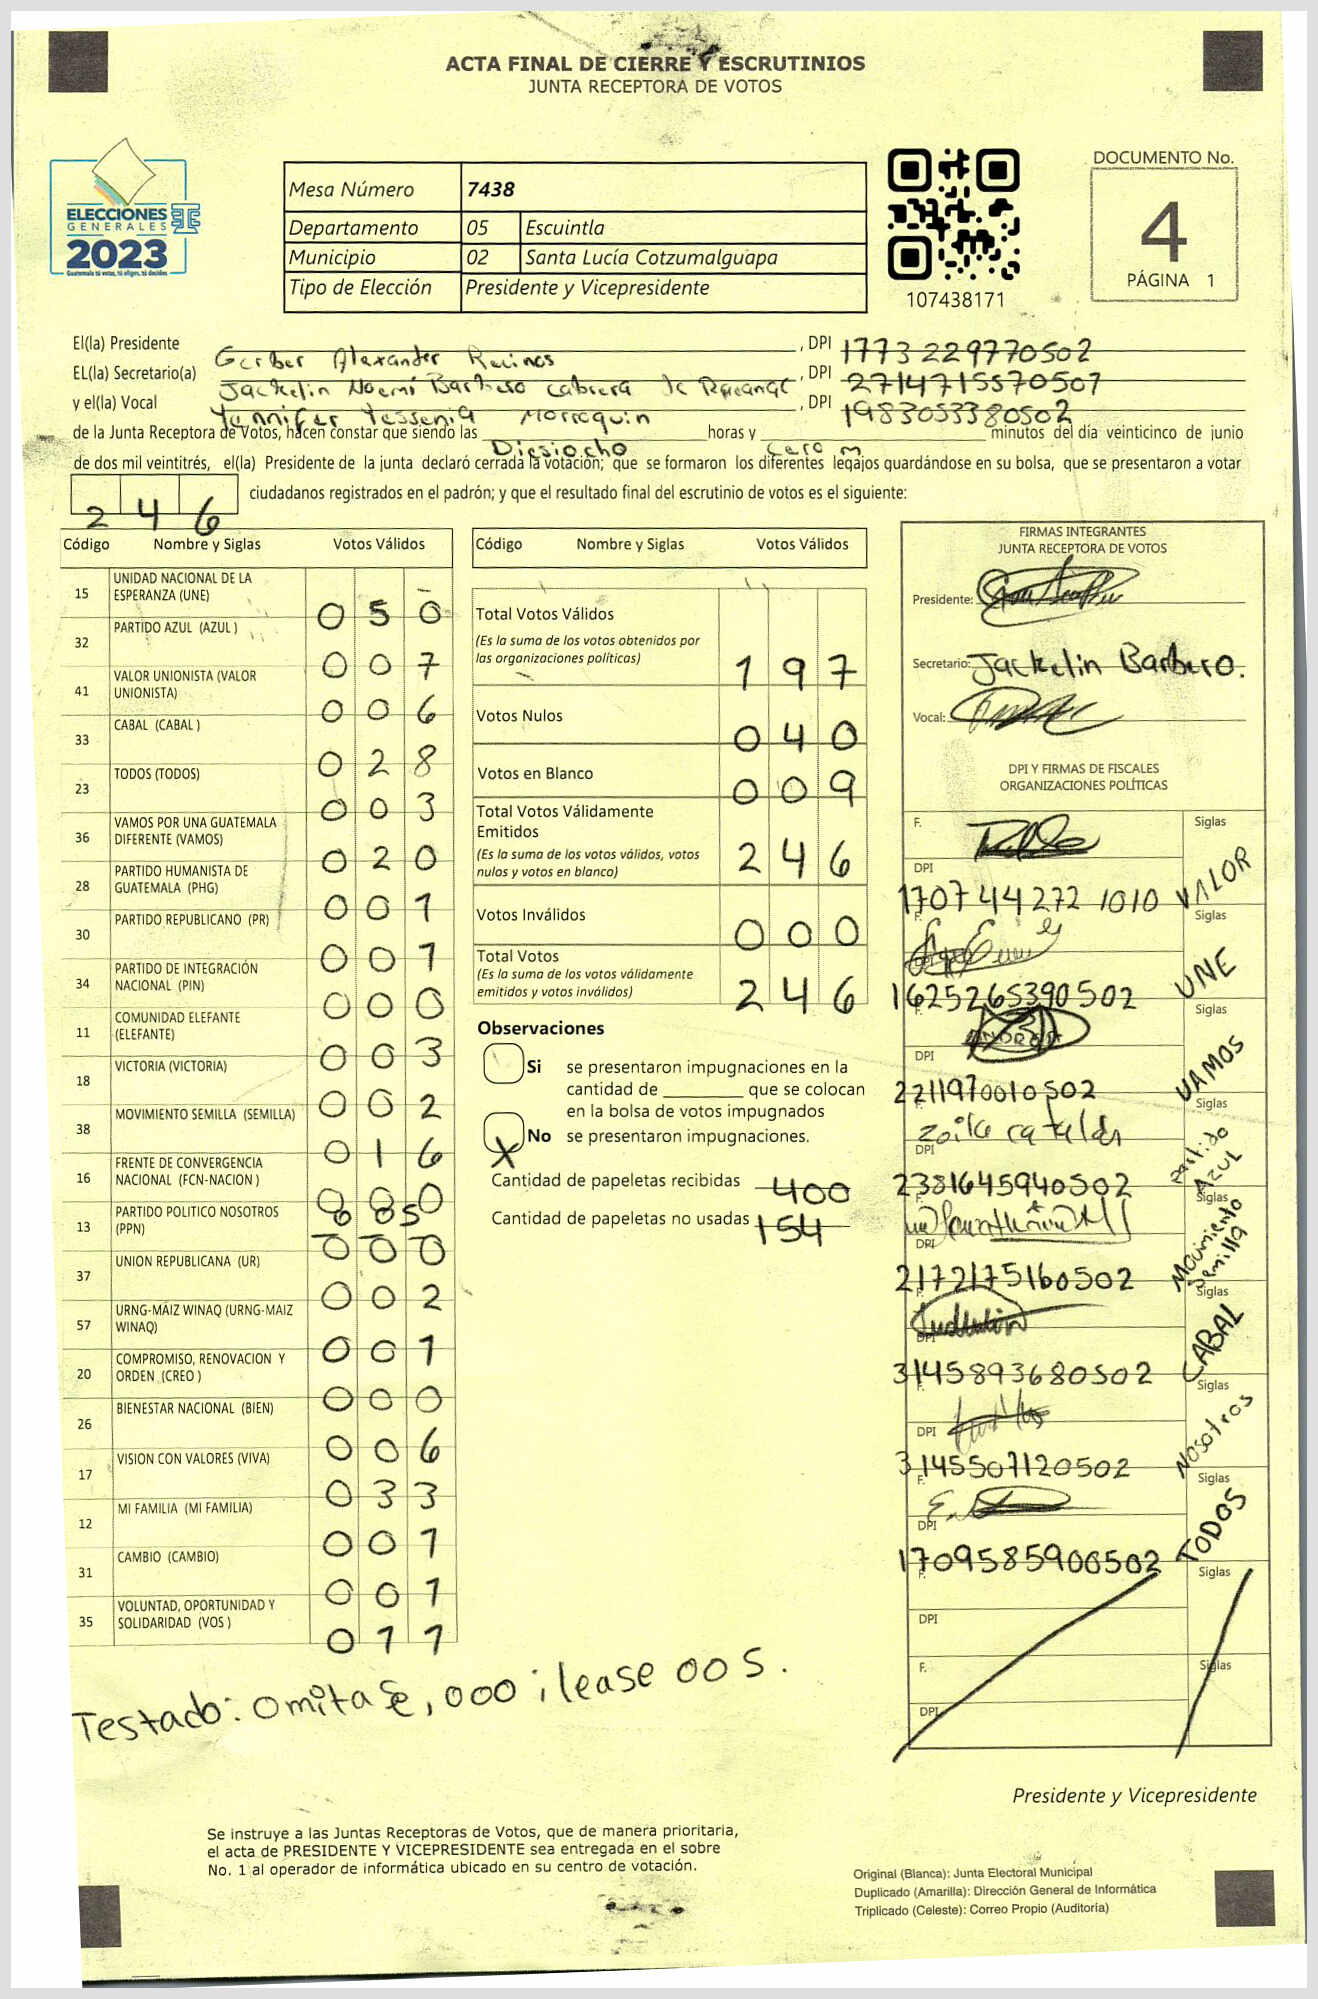 ACTA FINAL DE CIERRE Y ESCRUTINIOS
JUNTA RECEPTORA DE VOTOS
ELECCIONES
GENERALES
2023
Guatemala tú votas, tú eliges, tú decides
Mesa Número 7438
Departamento 05 Escuintla
Municipio 02 Santa Lucía Cotzumalguapa
Tipo de Elección Presidente y Vicepresidente
107438171
DOCUMENTO No.
4
PÁGINA 1
El(la) Presidente Gerber Alexander Recinos, DPI 1773229770502
EL(la) Secretario(a) Jackelin Noemí Barbero Cabrera de, DPI 2714715570507
y el(la) Vocal Yennifer Yessenia Morroquin, DPI 1983053380502
de la Junta Receptora de Votos, hacen constar que siendo las Diesiocho horas y cero minutos del día veinticinco de junio
de dos mil veintitrés, el(la) Presidente de la junta declaró cerrada la votación; que se formaron los diferentes legajos guardándose en su bolsa, que se presentaron a votar
246 ciudadanos registrados en el padrón; y que el resultado final del escrutinio de votos es el siguiente:
Código Nombre y Siglas Votos Válidos
15 UNIDAD NACIONAL DE LA ESPERANZA (UNE) 050
32 PARTIDO AZUL (AZUL ) 007
41 VALOR UNIONISTA (VALOR UNIONISTA) 006
33 CABAL (CABAL ) 028
23 TODOS (TODOS) 003
36 VAMOS POR UNA GUATEMALA DIFERENTE (VAMOS) 020
28 PARTIDO HUMANISTA DE GUATEMALA (PHG) 001
30 PARTIDO REPUBLICANO (PR) 001
34 PARTIDO DE INTEGRACIÓN NACIONAL (PIN) 000
11 COMUNIDAD ELEFANTE (ELEFANTE) 003
18 VICTORIA (VICTORIA) 002
38 MOVIMIENTO SEMILLA (SEMILLA) 016
16 FRENTE DE CONVERGENCIA NACIONAL (FCN-NACION ) 000
005
13 PARTIDO POLITICO NOSOTROS (PPN) 000
37 UNION REPUBLICANA (UR) 002
57 URNG-MAIZ WINAQ (URNG-MAIZ WINAQ) 001
20 COMPROMISO, RENOVACION Y ORDEN (CREO ) 000
26 BIENESTAR NACIONAL (BIEN) 006
17 VISION CON VALORES (VIVA) 033
12 MI FAMILIA (MI FAMILIA) 001
31 CAMBIO (CAMBIO) 001
35 VOLUNTAD, OPORTUNIDAD Y SOLIDARIDAD (VOS ) 011
Testado: omitase, 000; lease 005.
Código Nombre y Siglas Votos Válidos
Total Votos Válidos 197
(Es la suma de los votos obtenidos por
las organizaciones políticas)
Votos Nulos 040
Votos en Blanco 009
Total Votos Válidamente
Emitidos 246
(Es la suma de los votos válidos, votos
nulos y votos en blanco)
Votos Inválidos 000
Total Votos 246
(Es la suma de los votos válidamente
emitidos y votos inválidos)
Observaciones
Si se presentaron impugnaciones en la
cantidad de ________ que se colocan
en la bolsa de votos impugnados
X No se presentaron impugnaciones.
Cantidad de papeletas recibidas 400
Cantidad de papeletas no usadas 154
FIRMAS INTEGRANTES
JUNTA RECEPTORA DE VOTOS
Presidente:
Secretario: Jackelin Barbero.
Vocal:
DPI Y FIRMAS DE FISCALES
ORGANIZACIONES POLÍTICAS
F. Siglas
DPI 1707 44272 1010 VALOR
F. Siglas
DPI 1625265390502 UNE
F. Siglas
DPI 2211970010502 VAMOS
F. Siglas
DPI 2381645940502 Partido AZUL
F. Siglas
DPI 2172175160502 Movimiento Semilla
F. Siglas
DPI 3145893680502 CABAL
F. Siglas
DPI 3145507120502 Nosotros
F. Siglas
DPI 1709585900502 TODOS
F. Siglas
DPI
F. Siglas
DPI
Presidente y Vicepresidente
Se instruye a las Juntas Receptoras de Votos, que de manera prioritaria,
el acta de PRESIDENTE Y VICEPRESIDENTE sea entregada en el sobre
No. 1 al operador de informática ubicado en su centro de votación.
Original (Blanca): Junta Electoral Municipal
Duplicado (Amarilla): Dirección General de Informática
Triplicado (Celeste): Correo Propio (Auditoría)